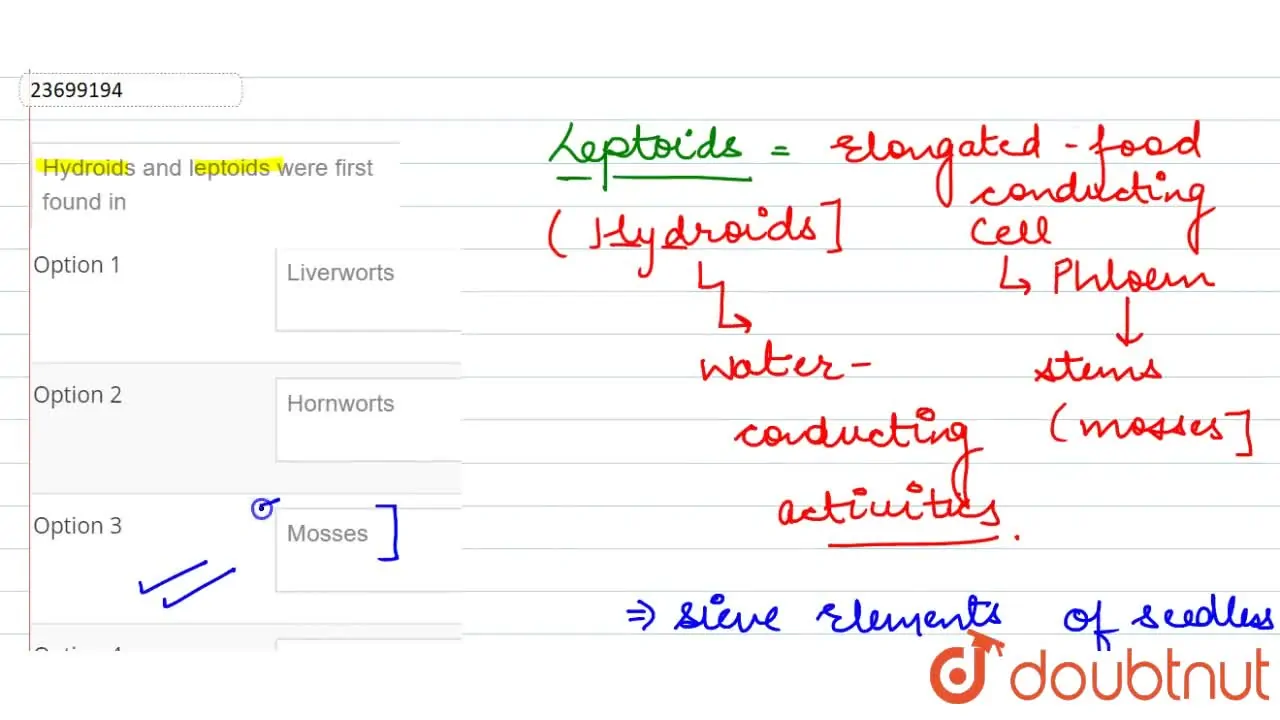 23699194
Hydroids and leptoids were first
found in
Option 1
Liverworts
Option 2
Hornworts
Option 3
Mosses ]
Leptoids = Elongated - food
conducting
cell
(Hydroids]
↳ Phloem
water -
conducting
activities.
stems
(mosses]
⇒ sieve Elements of seedless
doubtnut